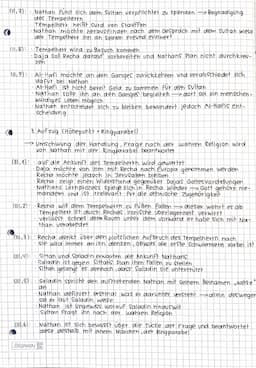 (II,7) Nathan fühlt sich dem Sultan verpflichtet zu spenden → Begnadigung
des Tempelherrn
Tempelherr heißt Curd von Stauffen
Nathan möchte herausfinden nach dem Gespräch mit dem Sultan wieso
der Tempelherr ihn an seinen Freund erinnert
(II,8) Tempelherr wird zu Besuch kommen
Daja soll Recha darauf vorbereiten und Nathans Plan nicht durchkreu-
zen
(II,9) Al-Hafi möchte an den Ganges zurückkehren und verabschiedet sich
dafür bei Nathan
Al-Hafi ist nicht bereit Geld zu sammeln für dem Sultan
Nathan solle ihn an den Ganges begleiten → dort sei ein menschen-
würdiges Leben möglich
Nathan entscheidet sich zu bleiben bewundert jedoch Al-Hafis Ent-
scheidung
3. Aufzug (Höhepunkt + Ringparabel)
→ Umschwung der Handlung, Frage nach der wahren Religion wird
von Nathan mit der Ringparabel beantwortet
(III,1) auf die Ankunft des Tempelherrn wird gewartet
Daja möchte von ihm mit Recha nach Europa genommen werden
Recha möchte jedoch in Jerusalem bleiben
Recha zeigt einen Widerstand gegenüber Dajas Gottesvorstellungen
Nathans Lernprozess spiegelt sich in Recha wieder → Gott gehöre nie-
mandem und ist irrelevant für die ethnische Zugehörigkeit
(III,2) Recha will dem Tempelherrn zu Füßen fallen → dieser wehrt es ab
Tempelherr ist durch Rechas visuelle Überlegenheit verwirrt
verlässt schnell den Raum unter dem Vorwand er habe sich mit Na-
than verabredet
(III,3) Recha denkt über den plötzlichen Aufbruch des Tempelherrn nach
sie wird immer an ihn denken, obwohl die erste Schwärmerei vorbei ist
(III,4) Sittah und Saladin erwarten die Ankunft Nathans
Saladin ist gegen Sittahs Plan ihm Fallen zu stellen
Sittah gelingt es dennoch, dass Saladin sie unterstützt
(III,5) Saladin spricht den auftretenden Nathan mit seinem Beinamen „weise"
an
Nathan definiert erstmal was er darunter versteht
Nathan ist irgendwo worauf Saladin hinaus will
Sultan fragt ihn nach der wahren Religion
(III,6) Nathan ist sich bewusst über die Tücke der Frage und beantwortet
diese deshalb mit einem Märchen der Ringparabel